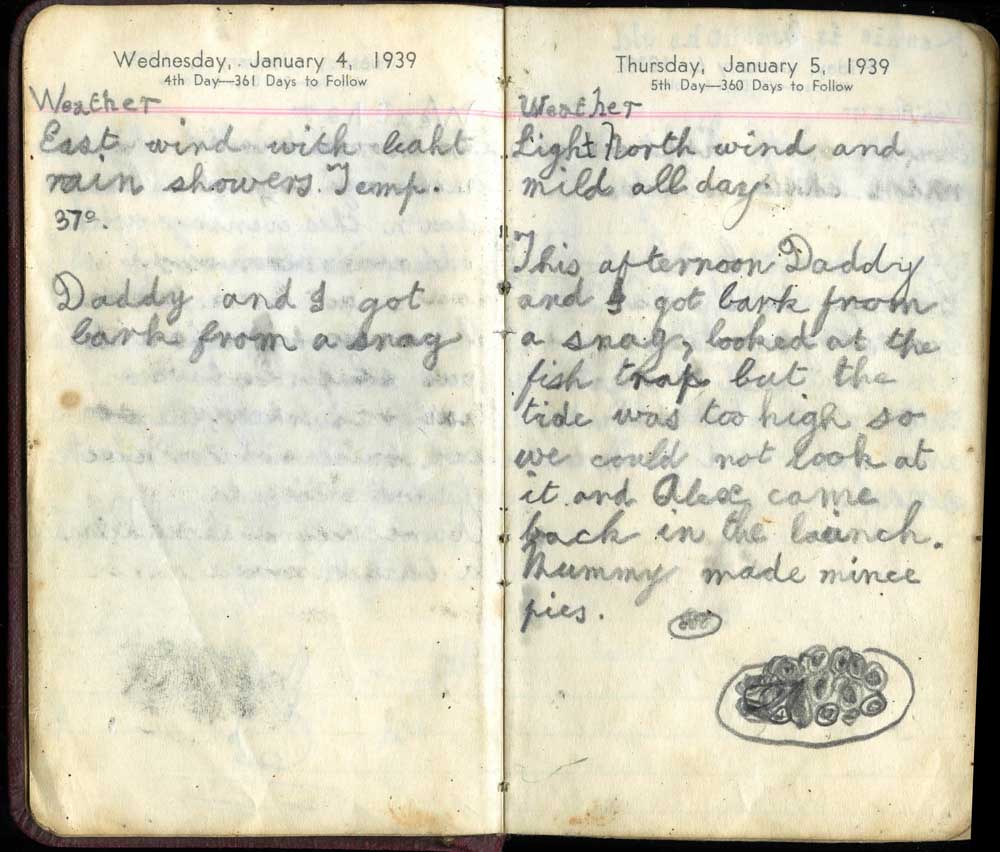 Wednesday, January 4, 1939
4th Day—361 Days to Follow
Weather
East wind with laht
rain showers. Temp.
37º.
Daddy and I got
bark from a snag
Thursday, January 5, 1939
5th Day—360 Days to Follow
Weather
Light North wind and
mild all day.
This afternoon Daddy
and I got bark from
a snag, looked at the
fish trap but the
tide was too high so
we could not look at
it and Alex came
back in the launch.
Mummy made mince
pies.